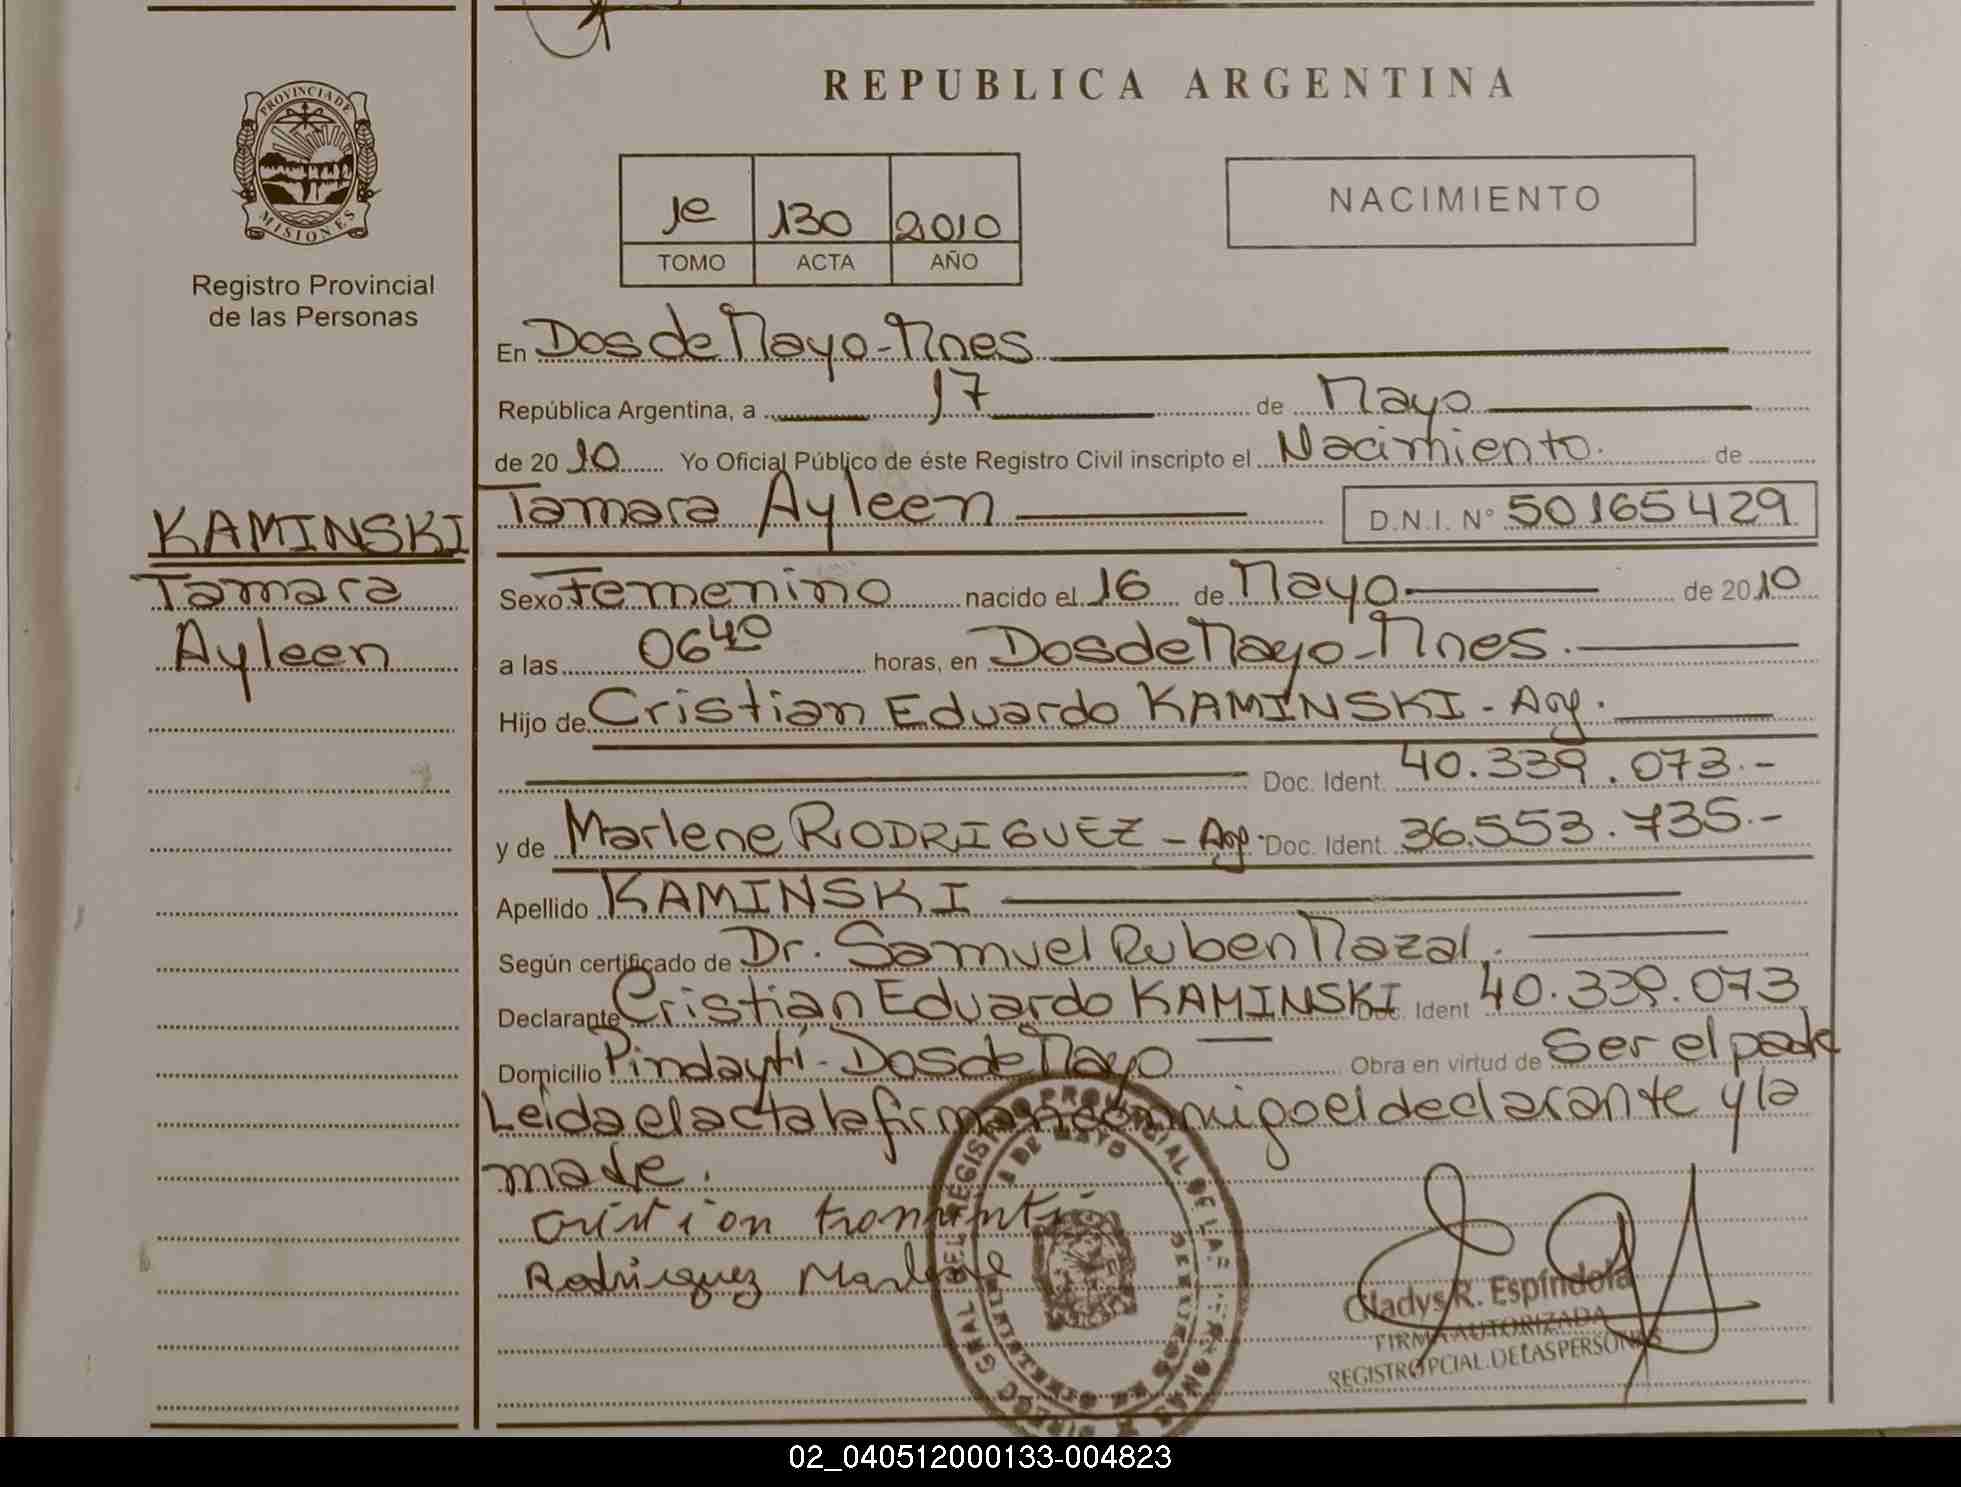 REPUBLICA ARGENTINA
PROVINCIA DE MISIONES
Registro Provincial
de las Personas
1e 130 2010
TOMO ACTA AÑO
NACIMIENTO
En Dos de Mayo - Mnes
República Argentina, a 17 de Mayo
de 2010 Yo Oficial Público de éste Registro Civil inscripto el Nacimiento. de
Tamara Ayleen D.N.I. Nº 50165429
KAMINSKI
Tamara
Ayleen
Sexo Femenino nacido el 16 de Mayo de 2010
a las 06 40 horas, en Dos de Mayo - Mnes.
Hijo de Cristian Eduardo KAMINSKI - Arg.
Doc. Ident. 40.339.073.-
y de Marlene RODRIGUEZ - Arg. Doc. Ident. 36.553.735.-
Apellido KAMINSKI
Según certificado de Dr. Samuel Ruben Mazal.
Declarante Cristian Eduardo KAMINSKI Doc. Ident 40.339.073
Domicilio Pindaytí - Dos de Mayo Obra en virtud de Ser el padre
Leída el acta la firman conmigo el declarante y la
madre.
Rodriguez Marlene
Gladys R. Espíndola
FIRMA AUTORIZADA
REGISTRO PCIAL. DE LAS PERSONAS
02_040512000133-004823